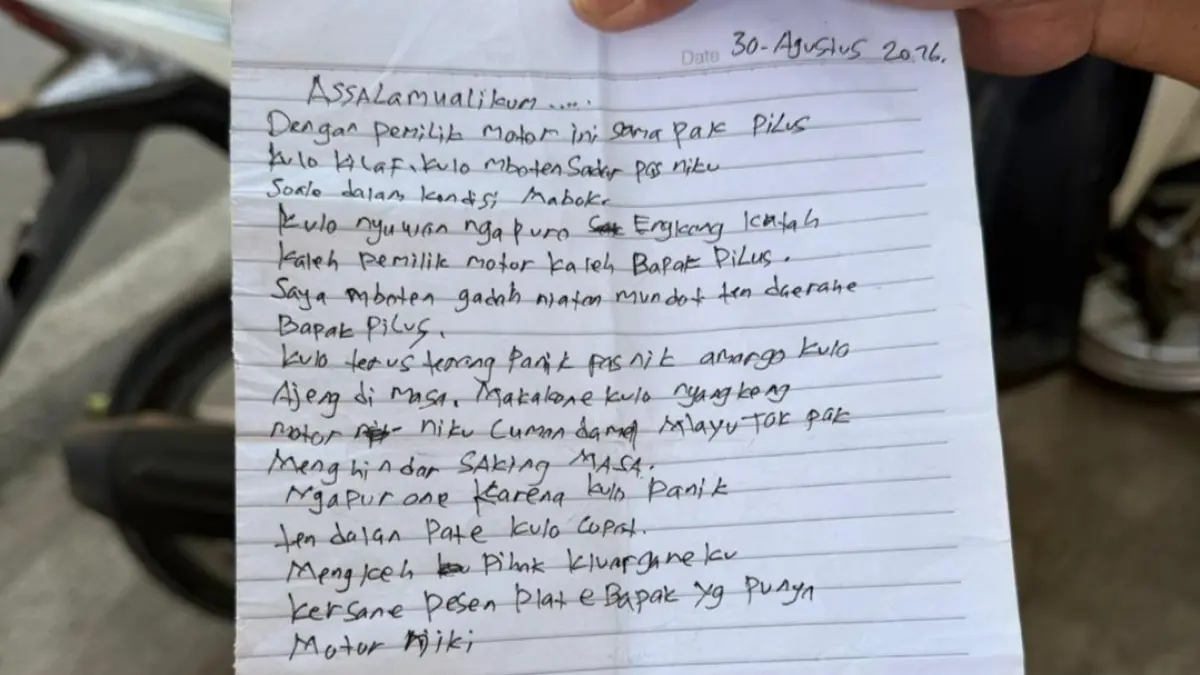 Date 30-Agustus 2026.
ASSALAMUALIKUM.....
Dengan pemilik motor ini sama pak PiLUS
Kulo kilaf. kulo mboten Sadar pas niku
Soale dalam kondisi Mabok.
Kulo nyuwan ngapuro Engkang katah
Kaleh pemilik motor kaleh Bapak PiLus.
Saya mboten gadah niatan mundot ten daerahe
Bapak PiLus.
Kulo terus terang Panik pas nik amargo kulo
Ajeng di masa. Makakone kulo nyangkeng
motor niku Cuman damel Mlayu Tok pak
Menghindar SAKing MASA.
Ngapurone Karena kulo Panik
ten dalan Pate kulo Copot.
Mengkeh Pihak kluargane ku
kersane pesen plate Bapak yg punya
Motor Niki